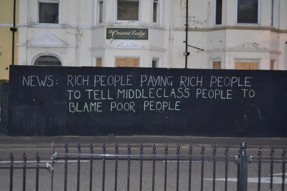 Crescent Lodge
NEWS: RICH PEOPLE PAYING RICH PEOPLE
TO TELL MIDDLECLASS PEOPLE TO
BLAME POOR PEOPLE